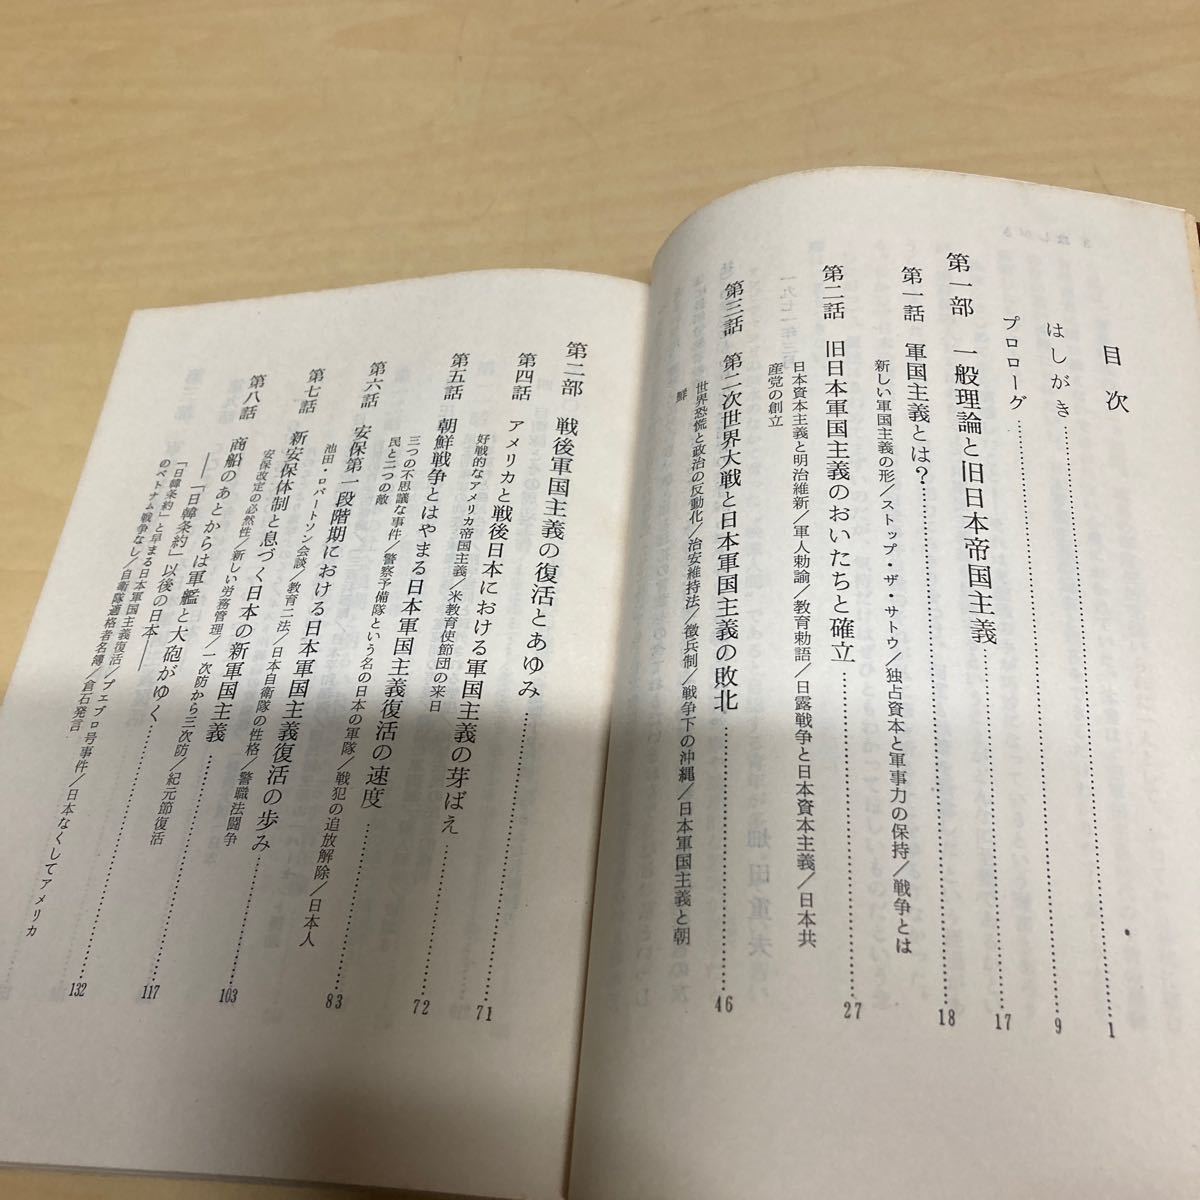 目次
はしがき……1
プロローグ……9
第一部 一般理論と旧日本帝国主義……17
第一話 軍国主義とは?……18
新しい軍国主義の形/ストップ・ザ・サトウ/独占資本と軍事力の保持/戦争とは
第二話 旧日本軍国主義のおいたちと確立……27
日本資本主義と明治維新/軍人勅諭/教育勅語/日露戦争と日本資本主義/日本共
産党の創立
第三話 第二次世界大戦と日本軍国主義の敗北……46
世界恐慌と政治の反動化/治安維持法/徴兵制/戦争下の沖縄/日本軍国主義と朝
鮮
第二部 戦後軍国主義の復活とあゆみ……71
第四話 アメリカと戦後日本における軍国主義の芽ばえ……72
好戦的なアメリカ帝国主義/米教育使節団の来日
第五話 朝鮮戦争とはやまる日本軍国主義復活の速度……83
三つの不思議な事件/警察予備隊という名の日本の軍隊/戦犯の追放解除/日本人
民と二つの敵
第六話 安保第一段階期における日本軍国主義復活の歩み……103
池田・ロバートソン会談/教育二法/日本自衛隊の性格/警職法闘争
第七話 新安保体制と息づく日本の新軍国主義……117
安保改定の必然性/新しい労務管理/一次防から三次防/紀元節復活
第八話 商船のあとからは軍艦と大砲がゆく……132
――「日韓条約」以後の日本――
「日韓条約」と早まる日本軍国主義復活/プエブロ号事件/日本なくしてアメリカ
のベトナム戦争なし/自衛隊適格者名簿/倉石発言